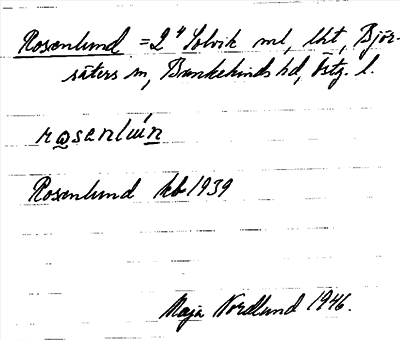 Rosenlund = 2⁴ Solvik ml, lht, Björ-
säters sn, Bankekinds hd, Östg. l.
rosenlún
Rosenlund kb 1939
Maja Nordlund 1946.